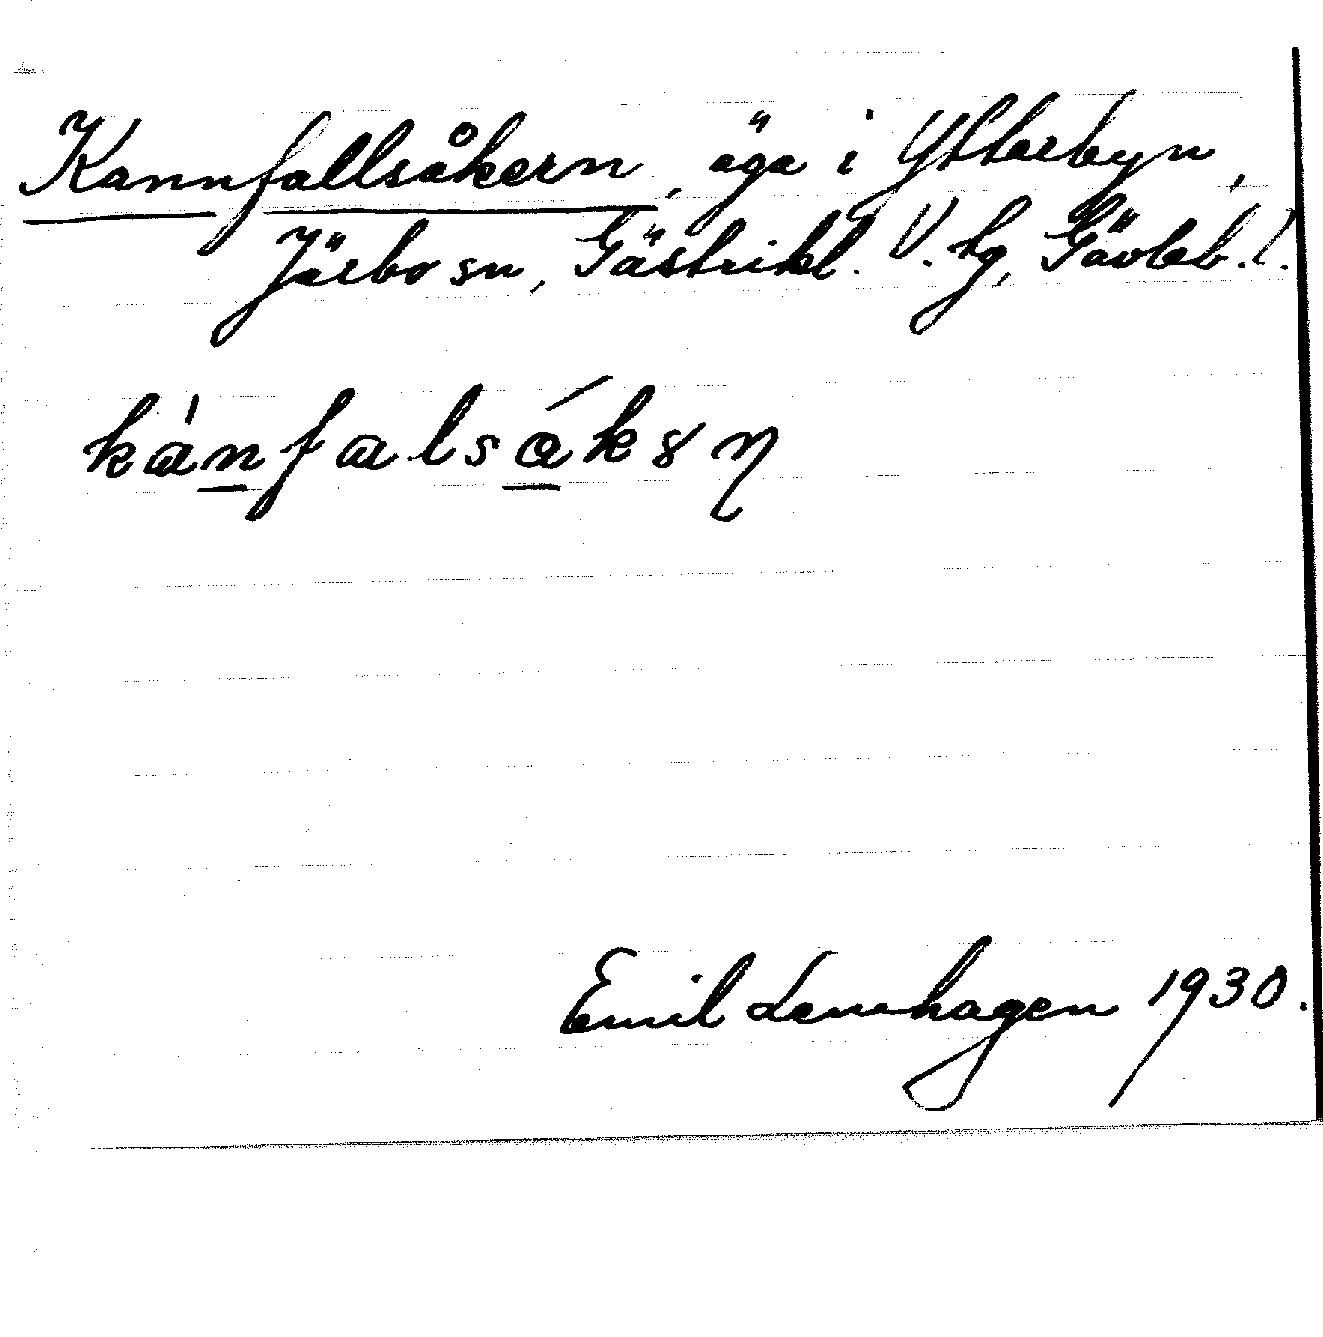 Kannfallsåkern, äga i Ytterbyn,
Järbo sn, Gästrikl. V. hg, Gävleb. l.
kánfalsåksn
Emil Lenhagen 1930.